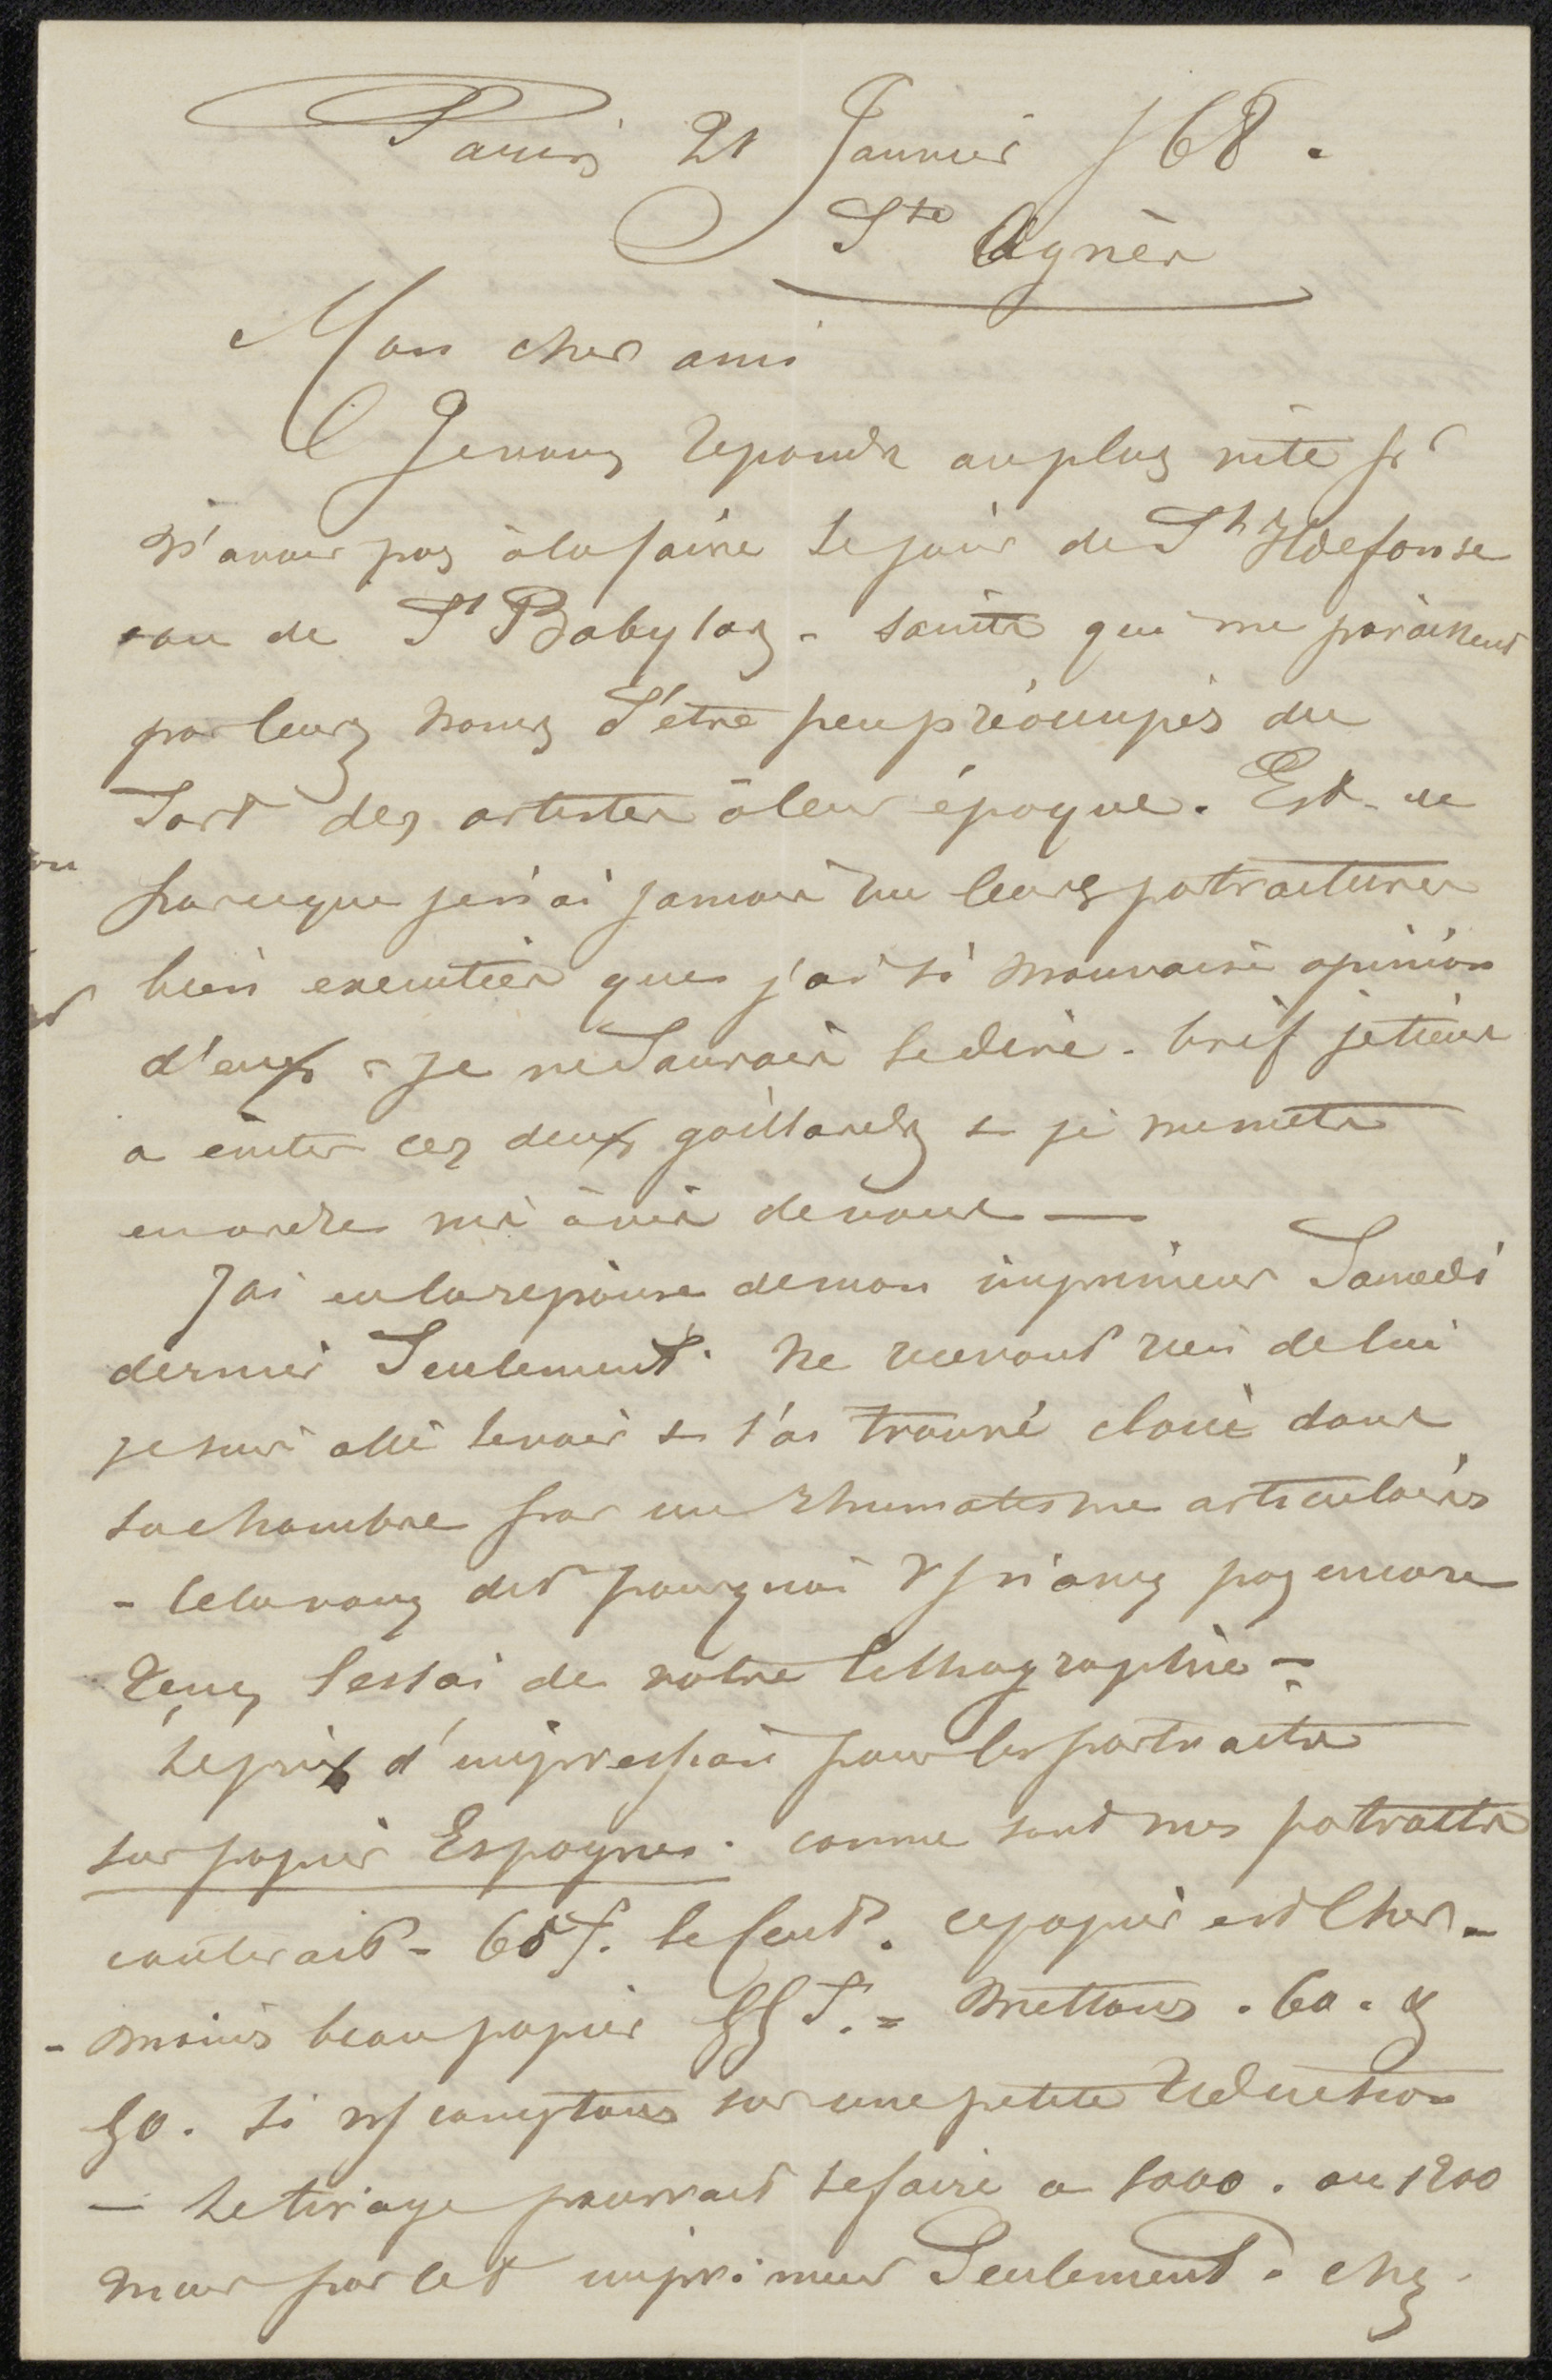 Paris 21 Janvier /68.
Ste Agnès
Mon cher ami
Je vous reponds au plus vite pr
n'avoir pas à le faire le jour de St Ildefonse
ou de St Babylas - saints qui me paraissent
par leurs noms s'être peu préoccupés du
sort des artistes à leur époque. Est-ce
parceque je n'ai jamais vu leurs potraitures
bien executées que j'ai si mauvaise opinion
d'eux - je ne saurais le dire. bref je tiens
a éviter ces deux gaillards & je me mets
en ordre vis à vis de vous —
J'ai eu la reponse de mon imprimeur Samedi
dernier Seulement. Ne recevant rien de lui
je suis allé le voir & l'ai trouvé cloué dans
sa chambre par un rhumatisme articulaire
- Cela vous dit pourquoi vs n'avez pas encore
reçu l'essai de votre lithographie -
Le prix d'impression pour les portraits
sur papier Espagnes. comme sont mes potraits
couterait - 65f. le Cent. ce papier est Cher -
- moins beau papier 55 f. = Mettons. 60. &
50. si ns comptons sur une petite reduction
— Le tirage pourrait se faire a 1000. ou 1200
mais par cet imprimeur Seulement. chez